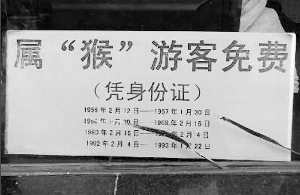 属“猴”游客免费
（凭身份证）
1956年2月12日——1957年1月30日
1968年1月30日——1969年2月16日
1980年2月16日——年2月4日
1992年2月4日——1993年1月22日